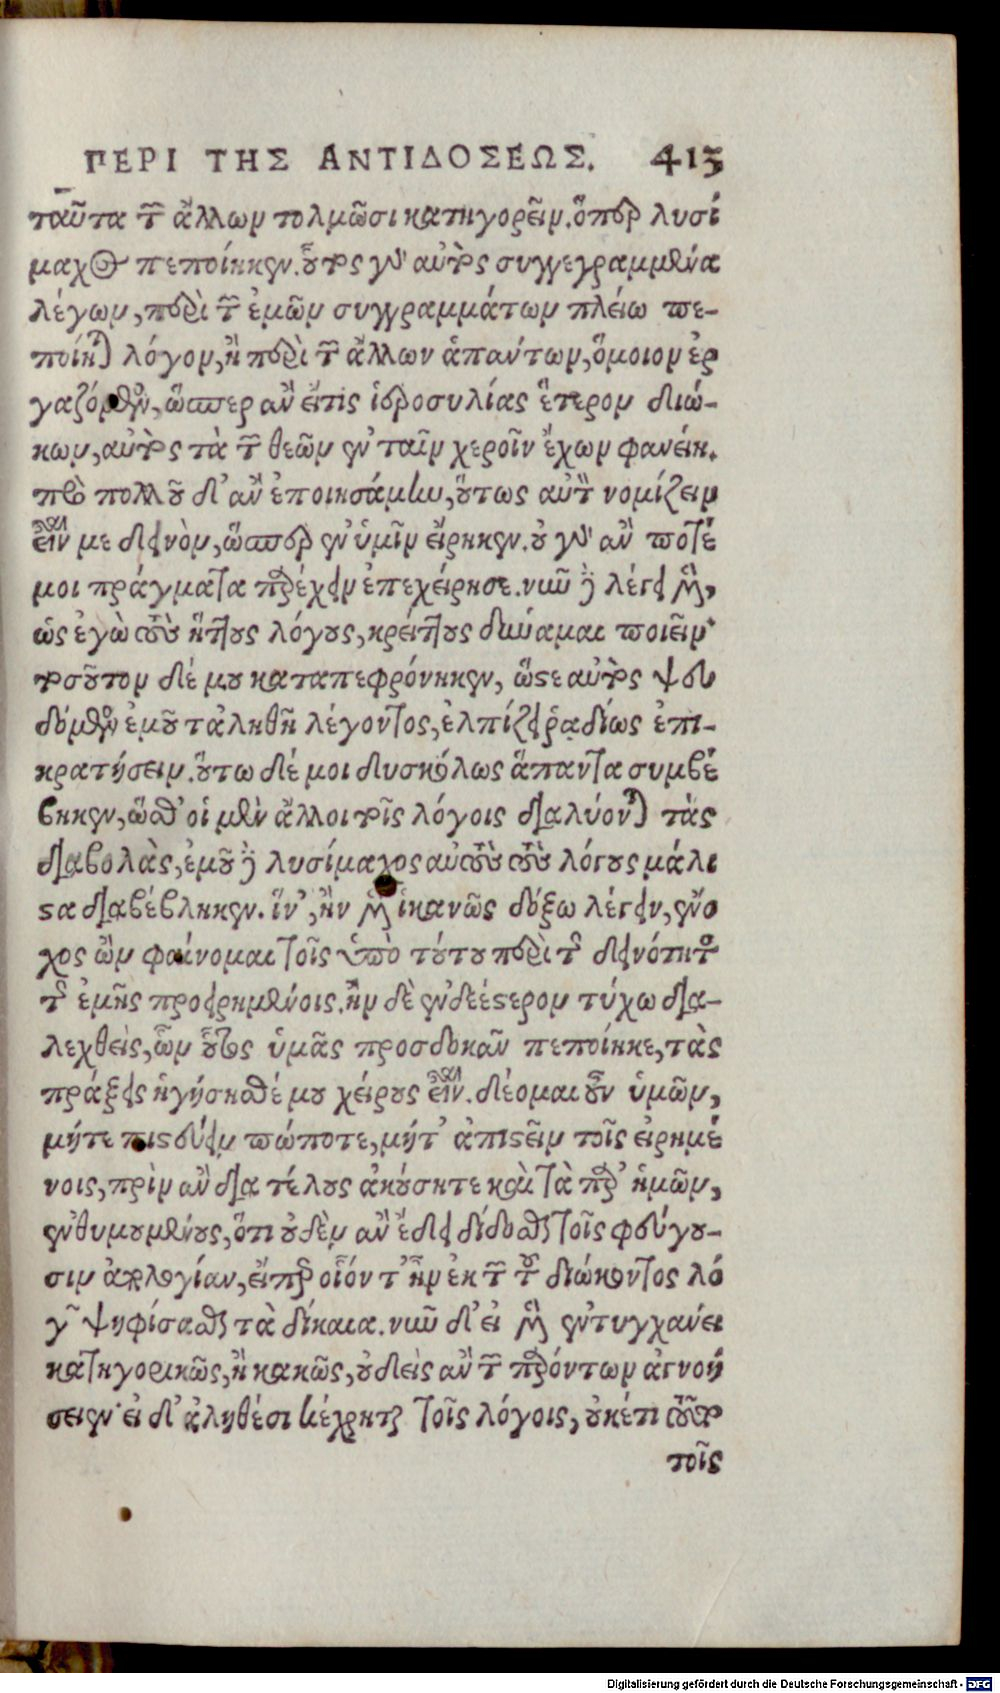 ΠΕΡΙ ΤΗΣ ΑΝΤΙΔΟΣΕΩΣ. 413
ταῦτα τῶν ἄλλων τολμῶσι κατηγορεῖν. ὅπερ λυσί
μαχος πεποίηκεν. οὗτος γὰρ αὐτὸς συγγεγραμμένα
λέγων, περὶ τῶν ἐμῶν συγγραμμάτων πλείω πε-
ποίηται λόγον, ἢ περὶ τῶν ἄλλων ἁπάντων, ὅμοιον ἐρ
γαζόμενος, ὥσπερ ἂν εἴτις ἱεροσυλίας ἕτερον διώ-
κων, αὐτὸς τὰ τῶν θεῶν ἐν ταῖν χεροῖν ἔχων φανείη.
πρὸ πολλοῦ δ' ἂν ἐποιησάμην, οὕτως αὐτὸν νομίζειν
εἶναι με δεινὸν, ὥσπερ ἐν ὑμῖν εἴρηκεν. οὐ γὰρ ἂν ποτέ
μοι πράγματα παρέχειν ἐπεχείρησε. νῦν δὲ λέγει μὲν,
ὡς ἐγὼ τοὺς ἥττους λόγους, κρείττους δύναμαι ποιεῖν·
τοσοῦτον δέ μου καταπεφρόνηκεν, ὥστε αὐτὸς ψευ
δόμενος ἐμοῦ τἀληθῆ λέγοντος, ἐλπίζει ῥᾳδίως ἐπι-
κρατήσειν. οὕτω δέ μοι δυσκόλως ἅπαντα συμβέ
βηκεν, ὥσθ' οἱ μὲν ἄλλοι τοῖς λόγοις διαλύονται τὰς
διαβολὰς, ἐμοῦ δὲ λυσίμαχος αὐτοὺς τοὺς λόγους μάλι
στα διαβέβληκεν. ἵν', ἢν μὲν ἱκανῶς δόξω λέγειν, ἔνο
χος ὢν φαίνομαι τοῖς ὑπὸ τούτου περὶ τῆς δεινότητος
τῆς ἐμῆς προειρημένοις. ἢν δὲ ἐνδεέστερον τύχω δια-
λεχθεὶς, ὧν οὗτος ὑμᾶς προσδοκᾶν πεποίηκε, τὰς
πράξεις ἡγήσησθέ μου χείρους εἶναι. δέομαι οὖν ὑμῶν,
μήτε πιστεύειν πώποτε, μήτ' ἀπιστεῖν τοῖς εἰρημέ
νοις, πρὶν ἂν διὰ τέλους ἀκούσητε καὶ τὰ παρ' ἡμῶν,
ἐνθυμουμένους, ὅτι οὐδὲν ἂν ἔδει δίδοσθαι τοῖς φεύγου-
σιν ἀπολογίαν, εἴπερ οἷόν τ' ἦν ἐκ τῶν τοῦ διώκοντος λό
γων ψηφίσασθαι τὰ δίκαια. νῦν δ' εἰ μὲν ἐντυγχανει
κατηγορικῶς, ἢ κακῶς, οὐδεὶς ἂν τῶν παρόντων ἀγνοή
σειεν· εἰ δ' ἀληθέσι κέχρηται τοῖς λόγοις, οὐκέτι τοῦτο
τοῖς
Digitalisierung gefördert durch die Deutsche Forschungsgemeinschaft - DFG